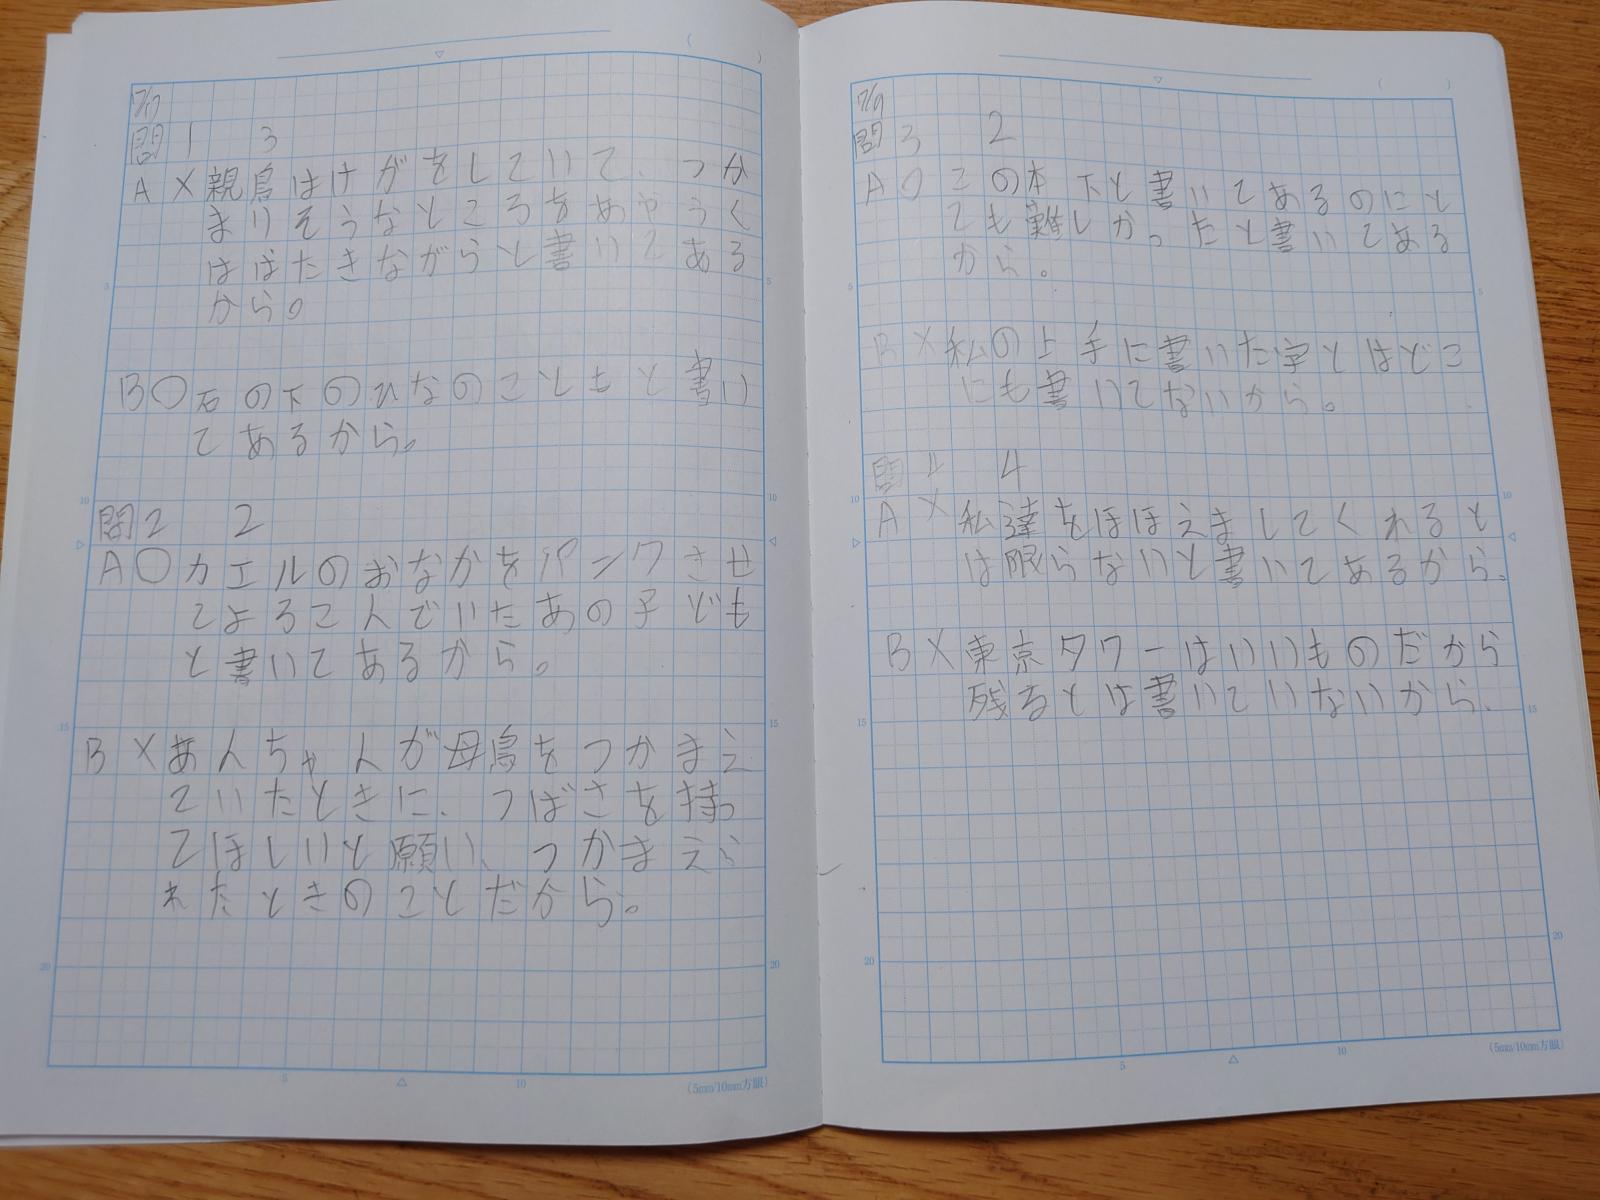 7/17
問1 3
A X 親鳥はけがをしていて、つか
まりそうなところをあやうく
はばたきながらと書いてある
から。
B○石の下のひなのこともと書い
てあるから。
問2 2
A○カエルのおなかをパンクさせ
てよろこんでいたあの子ども
と書いてあるから。
B X あんちゃんが母鳥をつかまえ
ていたときに、つばさを持っ
てほしいと願い、つかまえら
れたときのことだから。
(5mm/10mm方眼)
問3 2
A○この本下と書いてあるのにと
ても難しかったと書いてある
から。
B X 私の上手に書いた字とはどこ
にも書いてないから。
問4 4
A X 私達をほほえましてくれると
は限らないと書いてあるから。
B X 東京タワーはいいものだから
残るとは書いていないから、
(5mm/10mm方眼)